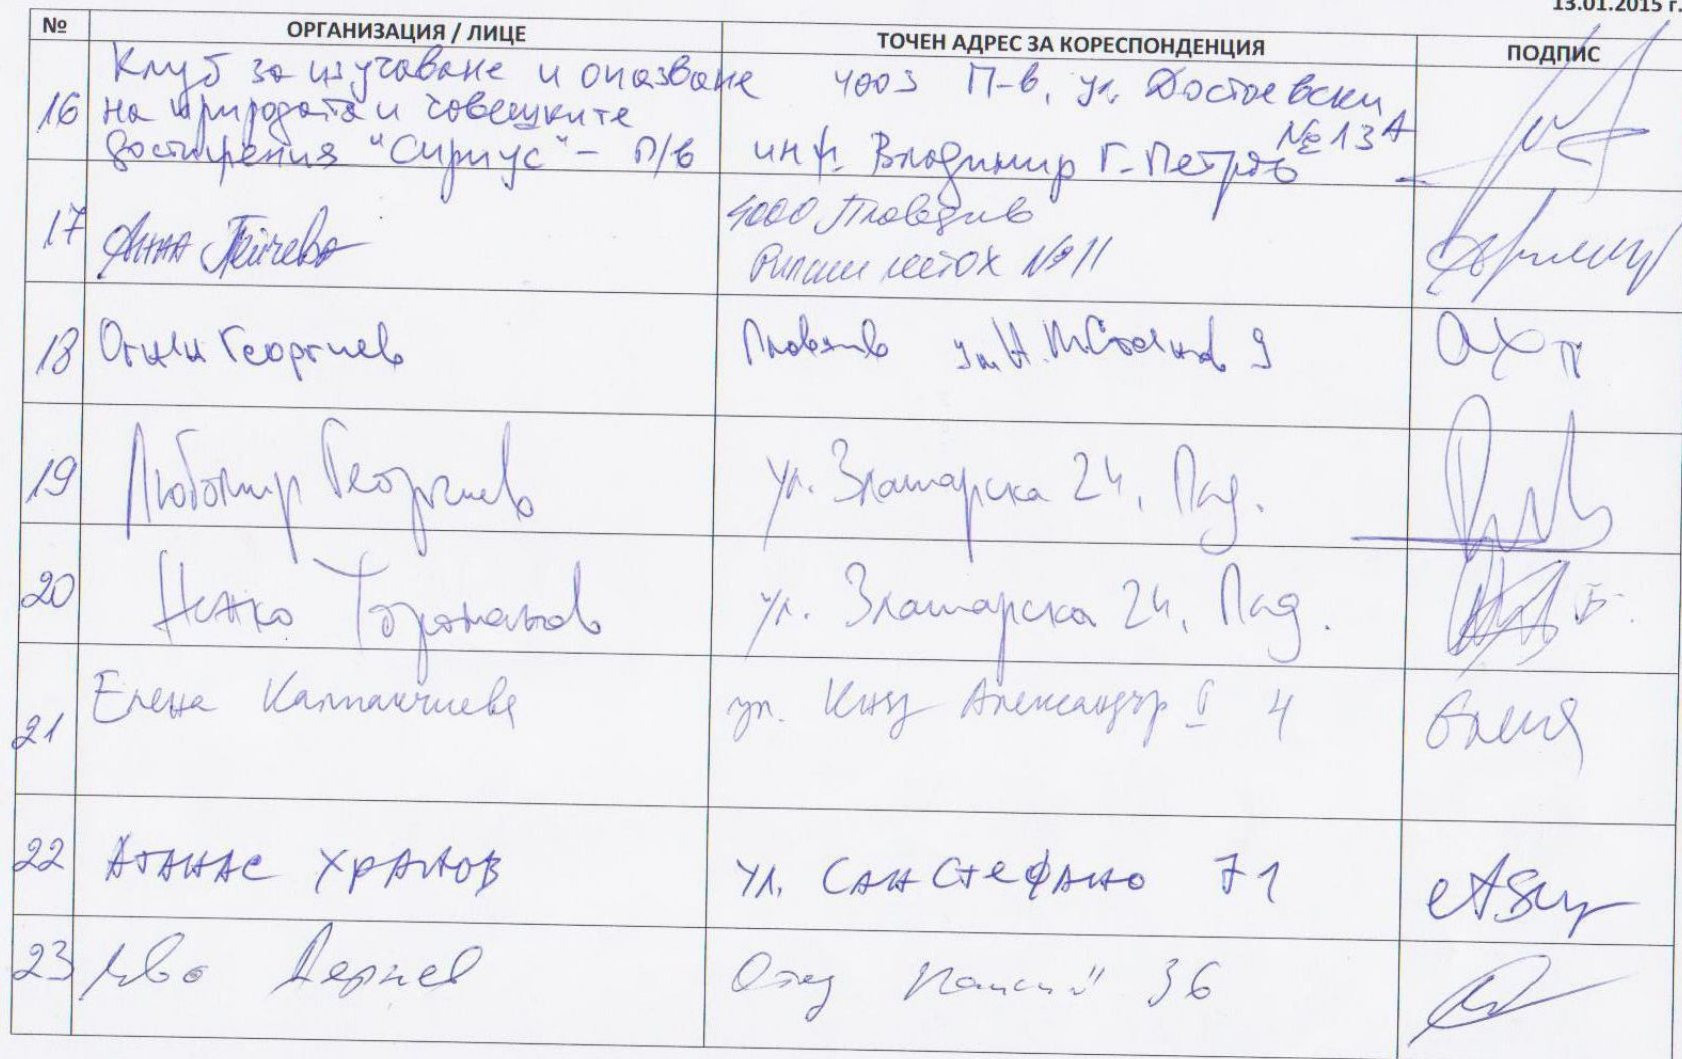 13.01.2015 г.
№ ОРГАНИЗАЦИЯ / ЛИЦЕ ТОЧЕН АДРЕС ЗА КОРЕСПОНДЕНЦИЯ ПОДПИС
16 Клуб за изучаване и опазване 4003 П-в, ул. Достоевски
на природата и човешките №13А
достижения "Сириус" - П/в инж. Владимир Г. Петров
17 Анна Пейчева 4000 Пловдив
№11
18 Огнян Георгиев Пловдив ул. 9
19 Любомир Георгиев ул. Златарска 24, Пд.
20 Ненко ул. Златарска 24, Пд.
21 Елена Капманчиева ул. Княз Александър I 4
22 АТАНАС ХРАНОВ УЛ. САН СТЕФАНО 71
23 Иво Дернев Отец Паисий 36